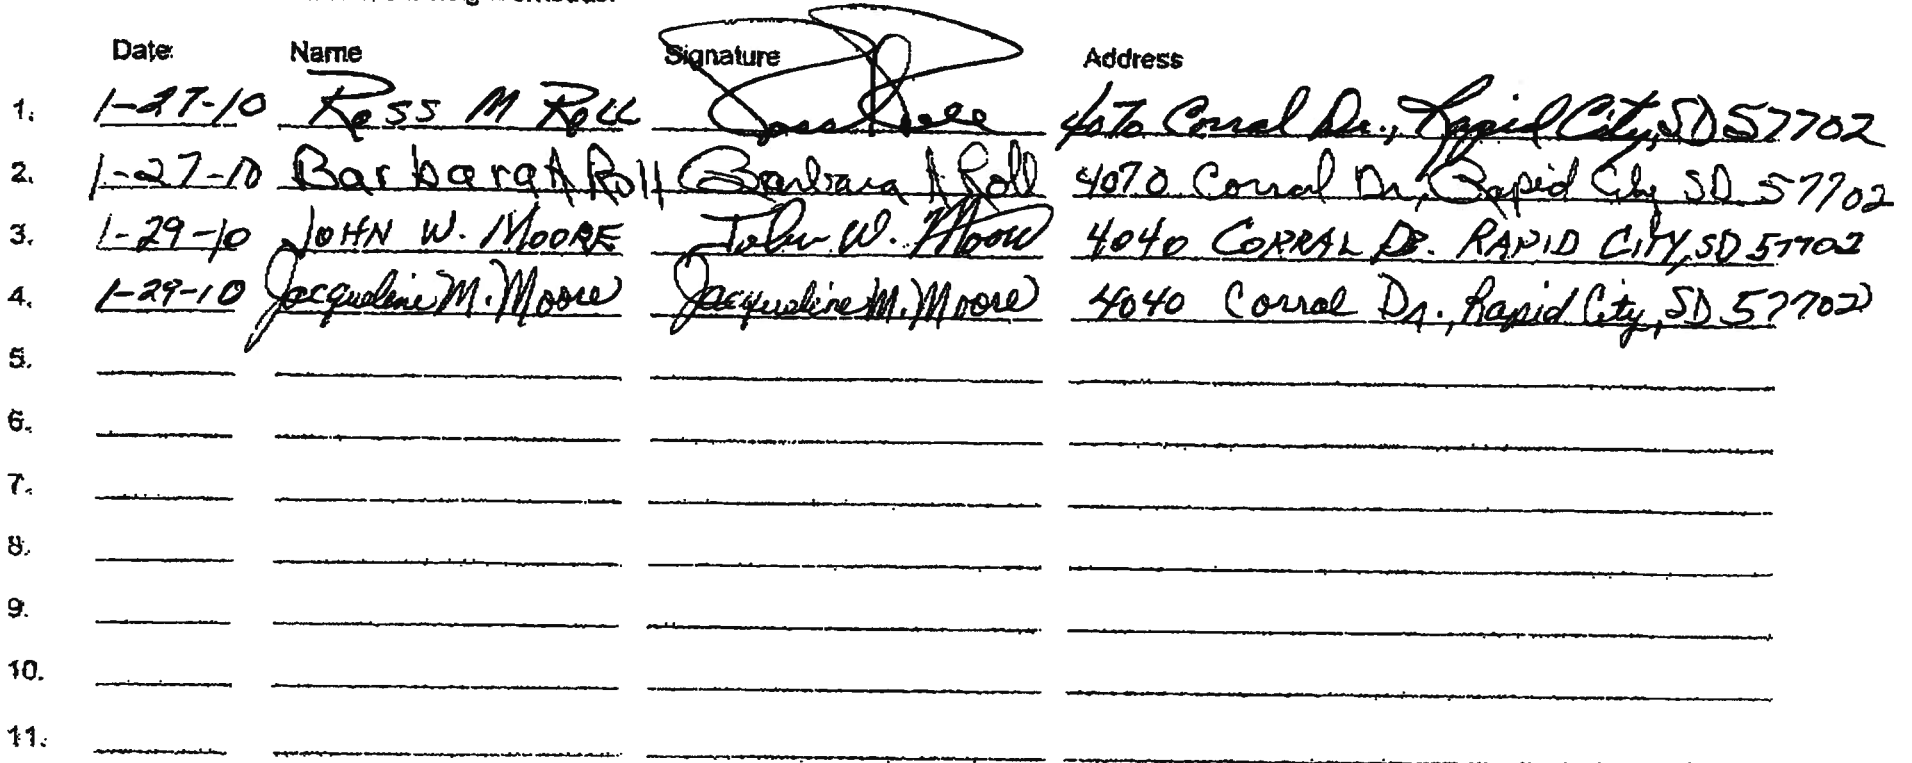 Date Name Signature Address
1. 1-27-10 Ross M Roll Ross Roll 4070 Corral Dr., Rapid City, SD 57702
2. 1-27-10 Barbara A Roll Barbara A Roll 4070 Corral Dr, Rapid City SD 57702
3. 1-29-10 JOHN W. MOORE John W. Moore 4040 CORRAL DR. RAPID CITY, SD 57702
4. 1-29-10 Jacqueline M. Moore Jacqueline M. Moore 4040 Corral Dr., Rapid City, SD 57702
5.
6.
7.
8.
9.
10.
11.